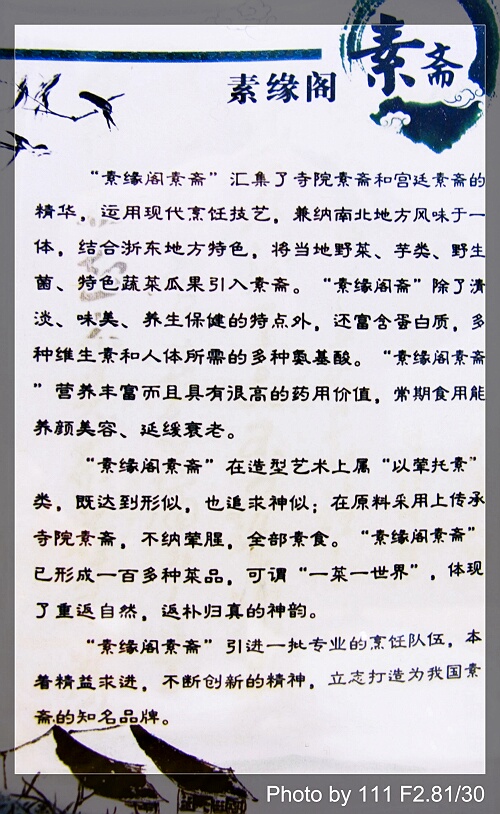 素斋
素缘阁
“素缘阁素斋”汇集了寺院素斋和宫廷素斋的
精华，运用现代烹饪技艺，兼纳南北地方风味于一
体，结合浙东地方特色，将当地野菜、芋类、野生
菌、特色蔬菜瓜果引入素斋。“素缘阁斋”除了清
淡、味美、养生保健的特点外，还富含蛋白质，多
种维生素和人体所需的多种氨基酸。“素缘阁素斋
”营养丰富而且具有很高的药用价值，常期食用能
养颜美容、延缓衰老。
“素缘阁素斋”在造型艺术上属“以荤托素”
类，既达到形似，也追求神似；在原料采用上传承
寺院素斋，不纳荤腥，全部素食。“素缘阁素斋”
已形成一百多种菜品，可谓“一菜一世界”，体现
了重返自然，返朴归真的神韵。
“素缘阁素斋”引进一批专业的烹饪队伍，本
着精益求进，不断创新的精神，立志打造为我国素
斋的知名品牌。
Photo by 111 F2.81/30